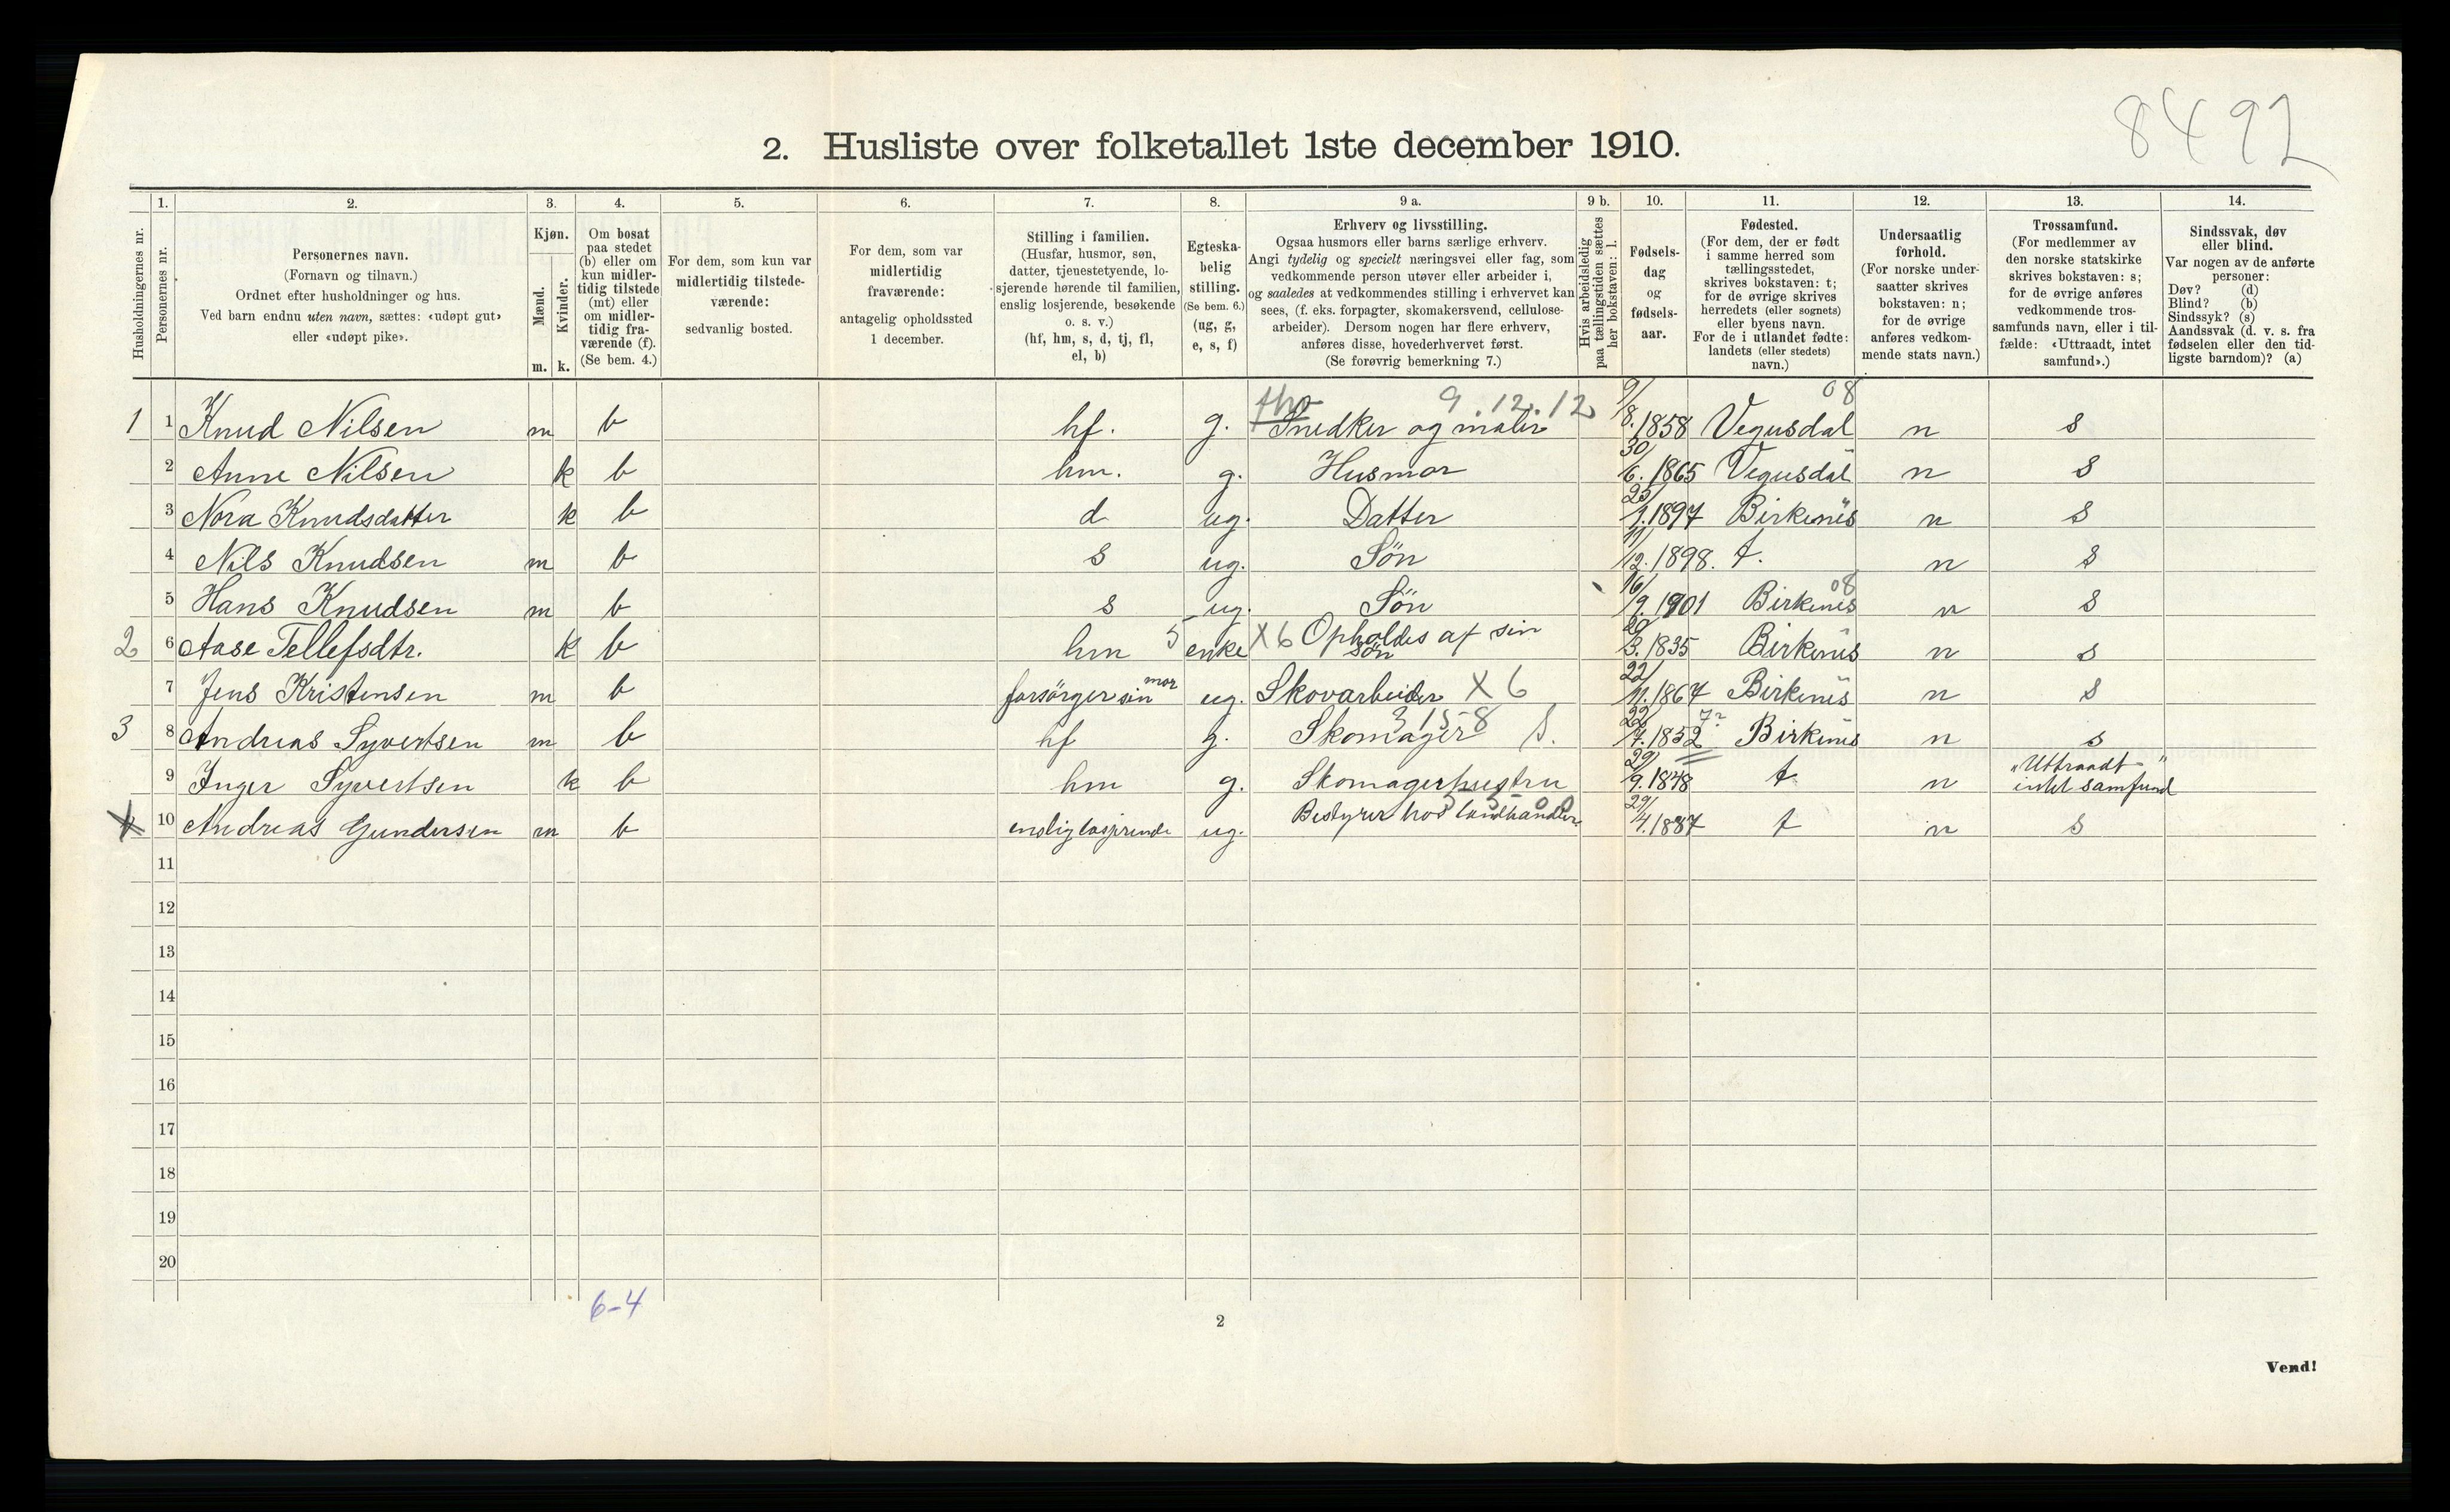 8492
2. Husliste over folketallet 1ste december 1910.
1. 2. 3. 4. 5. 6. 7. 8. 9 a. 9 b. 10. 11. 12. 13. 14.
Husholdningernes nr.
Personernes nr.
Personernes navn.
(Fornavn og tilnavn.)
Ordnet efter husholdninger og hus.
Ved barn endnu uten navn, sættes: «udøpt gut»
eller «udøpt pike».
Kjøn.
Mænd.
Kvinder.
m. k.
Om bosat
paa stedet
(b) eller om
kun midler-
tidig tilstede
(mt) eller
om midler-
tidig fra-
værende (f).
(Se bem. 4.)
For dem, som kun var
midlertidig tilstede-
værende:
sedvanlig bosted.
For dem, som var
midlertidig
fraværende:
antagelig opholdssted
1 december.
Stilling i familien.
(Husfar, husmor, søn,
datter, tjenestetyende, lo-
sjerende hørende til familien,
enslig losjerende, besøkende
o. s. v.)
(hf, hm, s, d, tj, fl,
el, b)
Egteska-
belig
stilling.
(Se bem. 6.)
(ug, g,
e, s, f)
Erhverv og livsstilling.
Ogsaa husmors eller barns særlige erhverv.
Angi tydelig og specielt næringsvei eller fag, som
vedkommende person utøver eller arbeider i,
og saaledes at vedkommendes stilling i erhvervet kan
sees, (f. eks. forpagter, skomakersvend, cellulose-
arbeider). Dersom nogen har flere erhverv,
anføres disse, hovederhvervet først.
(Se forøvrig bemerkning 7.)
Hvis arbeidsledig
paa tællingstiden sættes
her bokstaven: l.
Fødsels-
dag
og
fødsels-
aar.
Fødested.
(For dem, der er født
i samme herred som
tællingsstedet,
skrives bokstaven: t;
for de øvrige skrives
herredets (eller sognets)
eller byens navn.
For de i utlandet fødte:
landets (eller stedets)
navn.)
Undersaatlig
forhold.
(For norske under-
saatter skrives
bokstaven: n;
for de øvrige
anføres vedkom-
mende stats navn.)
Trossamfund.
(For medlemmer av
den norske statskirke
skrives bokstaven: s;
for de øvrige anføres
vedkommende tros-
samfunds navn, eller i til-
fælde: «Uttraadt, intet
samfund».)
Sindssvak, døv
eller blind.
Var nogen av de anførte
personer:
Døv? (d)
Blind? (b)
Sindssyk? (s)
Aandssvak (d. v. s. fra
fødselen eller den tid-
ligste barndom)? (a)
9.12.12 08
1 1 Knud Nilsen m b hf. g. Snedker og maler 9/8. 1858 Vegusdal n s
2 Anne Nilsen k b hm. g. Husmor 30/6. 1865 Vegusdal n s
3 Nora Knudsdatter k b d ug. Datter 25/1. 1897 Birkenäs n s
4 Nils Knudsen m b s ug. Sön 11/12. 1898. t. n s
08
5 Hans Knudsen m b s ug. Sön 16/9. 1901 Birkenäs n s
2 6 Aase Tellefsdtr. k b hm 5 enke X6 Opholdes af sin sön 20/3. 1835 Birkenäs n s
7 Jens Kristensen m b forsörger sin mor ug. Skovarbeider X 6 22/11. 1867 Birkenäs n s
3158 7?
3 8 Andreas Syvertsen m b hf g. Skomager S. 22/7. 1852 Birkenäs n s
9 Inger Syvertsen k b hm g. Skomagerhustru 29/9. 1848 t n "Uttraadt" intet samfund
X 10 Andreas Gundersen m b enslig losjerende ug. Bestyrer hos landhandler 29/4. 1887 t n s
11
12
13
14
15
16
17
18
19
20
6-4
2
Vend!